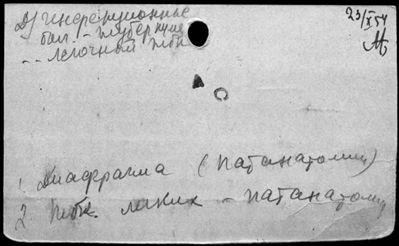 Д) инфекционные
23/X 54
бол. - туберкулез
- - легочный тбк
1. Диафрагма (патанатомия)
2 тбк. легких - патанатомия